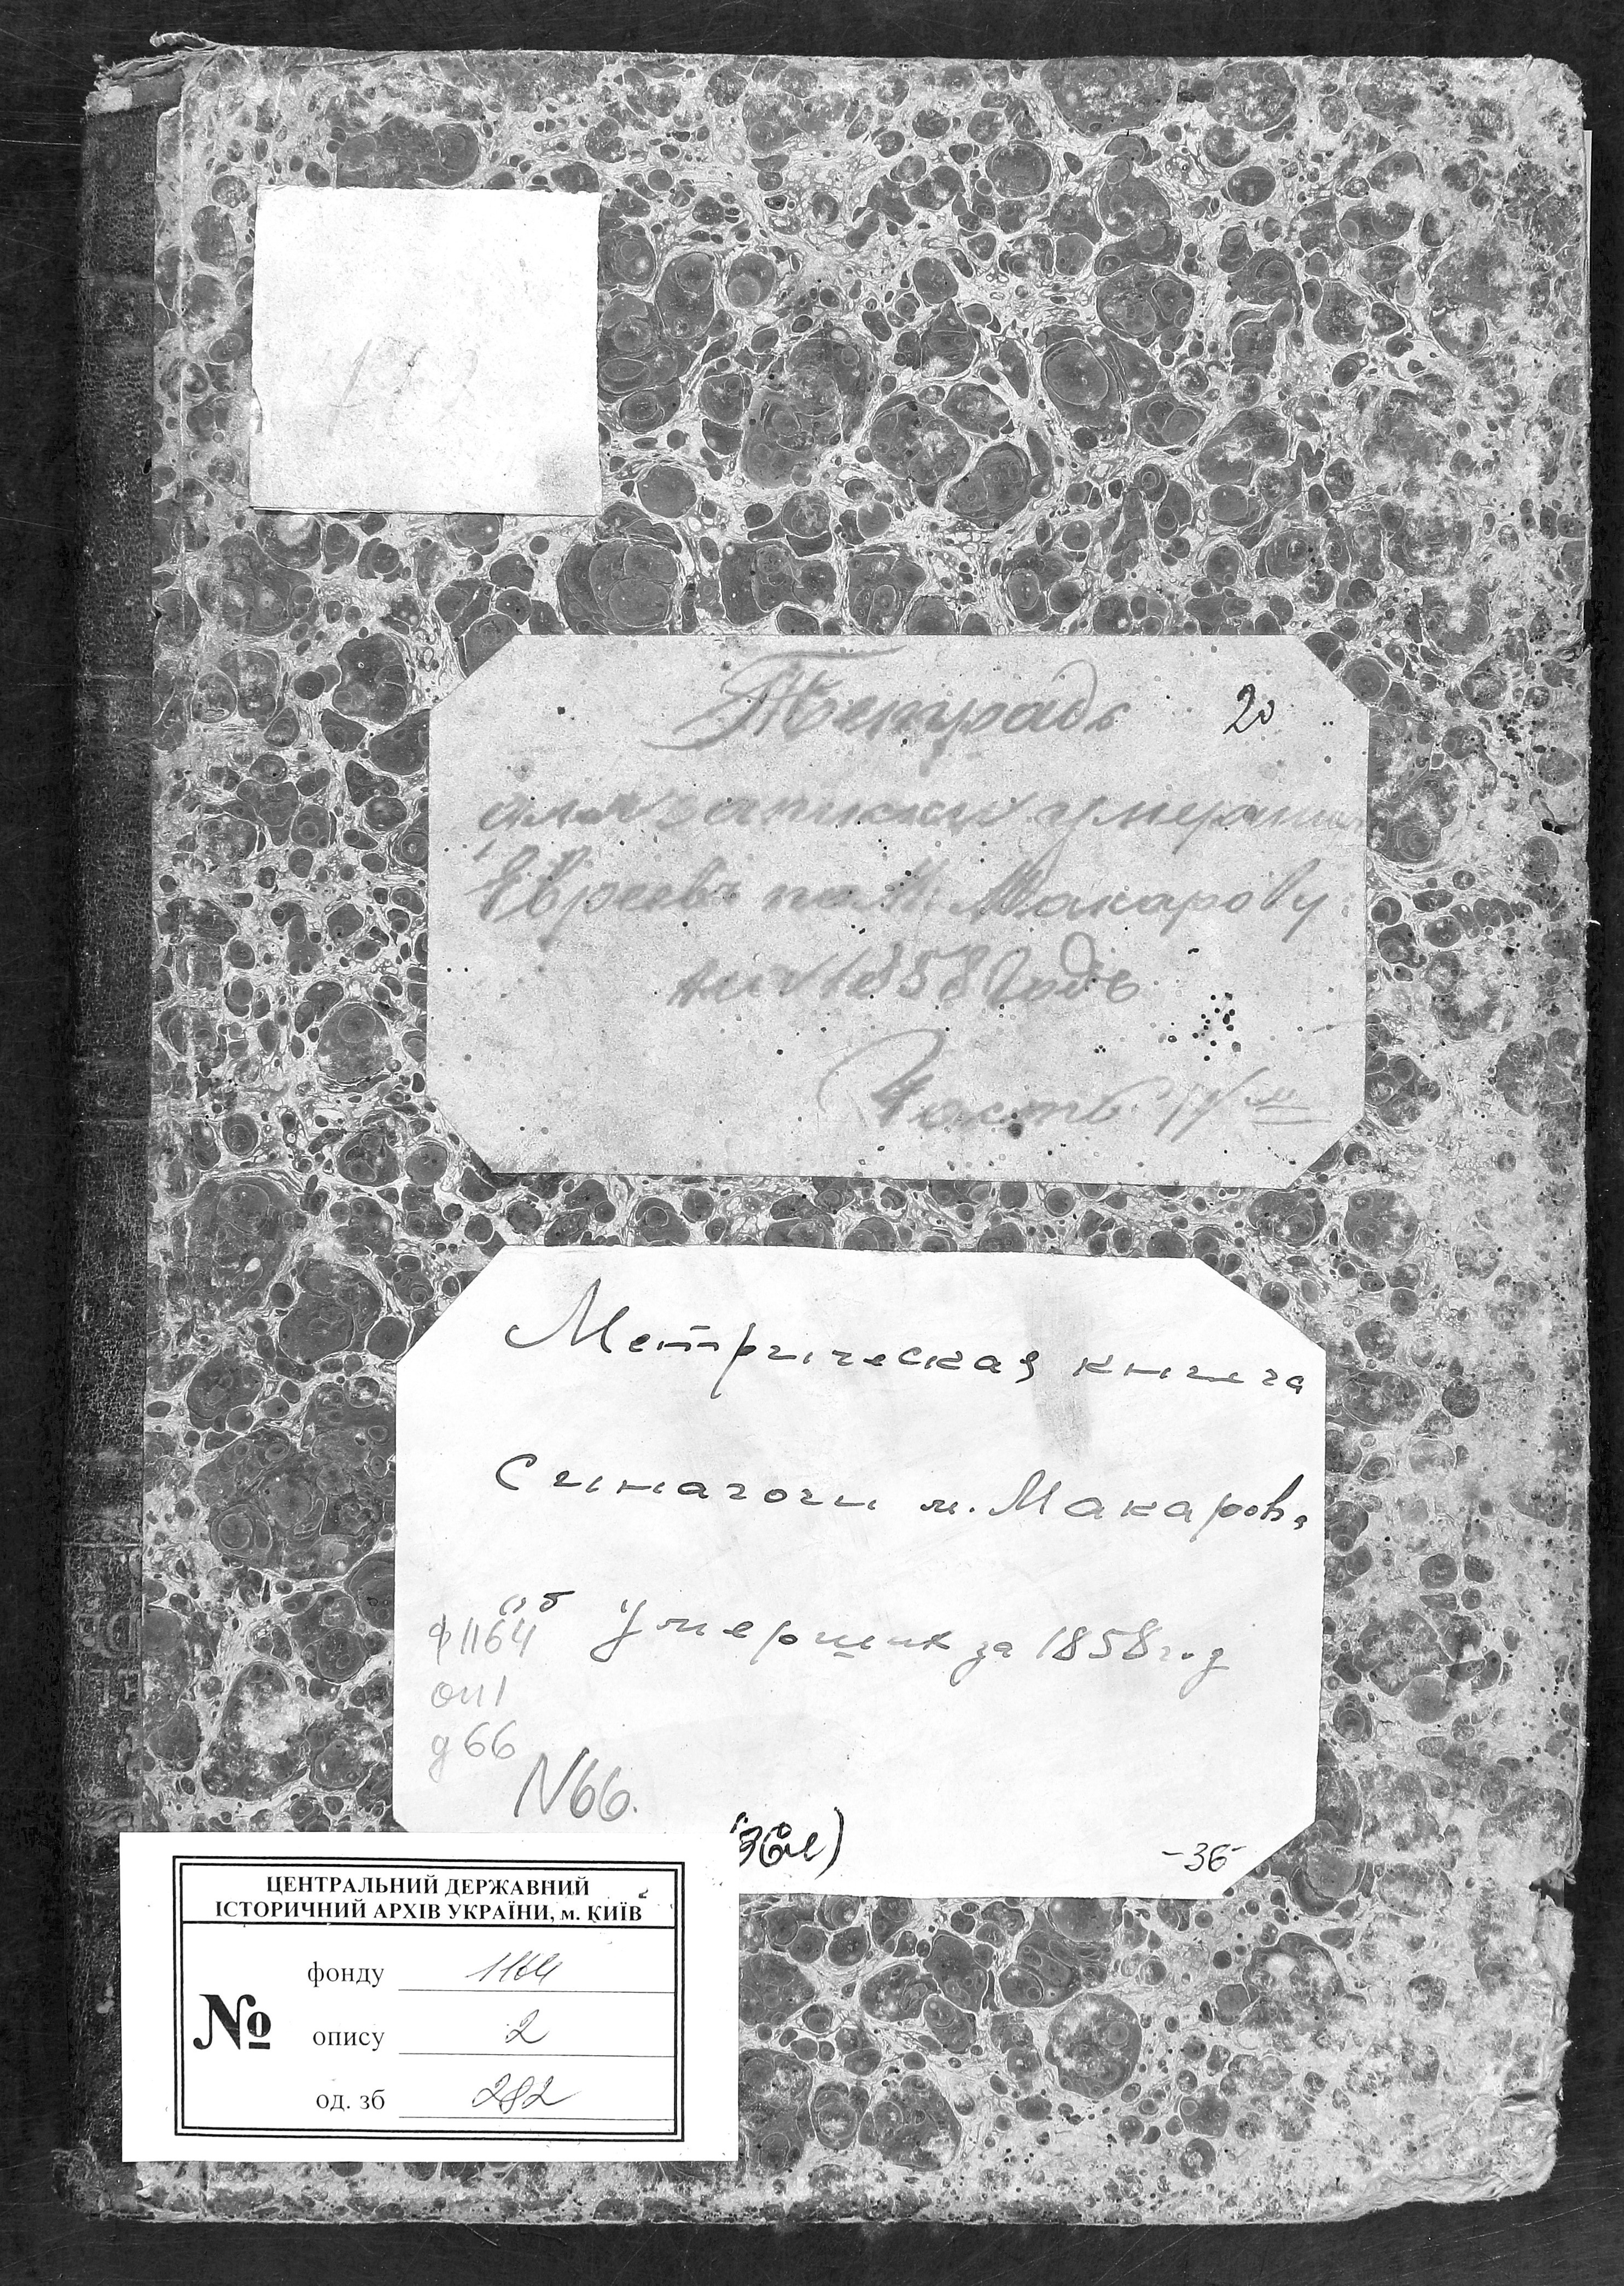 Тетрадь 20
для записки умершихъ
Евреевъ по М. Макарову
на 1858 Годъ
Часть IV я
Метрическая книга
Синагоги м. Макаров,
об умерших за 1858 год
ф 1164
оп 1
д 66
N 66.
36 л)
-36-
ЦЕНТРАЛЬНИЙ ДЕРЖАВНИЙ
ІСТОРИЧНИЙ АРХІВ УКРАЇНИ, м. КИЇВ
№
фонду 1164
опису 2
од. зб 282